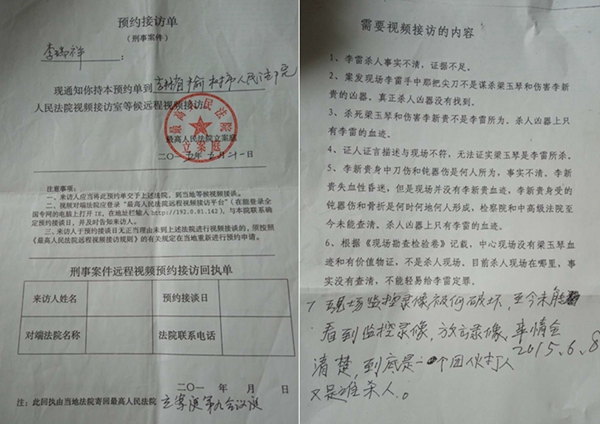 预约接访单
(刑事案件)
李瑞祥
现通知你持本预约单到吉林省榆树市人民法院
人民法院视频接访室等候远程视频接访。
最高人民法院
立案庭
最高人民法院立案庭
二〇一五年五月二十一日
注意事项:
一、来访人应当将此预约单交于上述法院,到当地等候视频接谈。
二、视频对端法院应登录“最高人民法院远程视频接访平台”(在能登录全
国专网的电脑上打开 IE,在地址栏输入 http://192.0.81.143),与本院联系确
定预约接谈日,并及时告知来访人。
三、来访人于预约接谈日无正当理由未到上述法院进行视频接谈的,须按照
《最高人民法院远程视频接访规则》的有关规定在当地重新进行预约申请。
刑事案件远程视频预约接访回执单
来访人姓名 预约接谈日
对端法院名称 法院联系电话
二〇一 年 月 日
注:此回执由当地法院寄回最高人民法院立案庭第九合议庭
需要视频接访的内容
1、李雷杀人事实不清,证据不足。
2、案发现场李雷手中那把尖刀不是谋杀梁玉琴和伤害李新
贵的凶器,真正杀人凶器没有找到。
3、杀死梁玉琴和伤害李新贵不是李雷所为,杀人凶器上只
有李雷的血迹。
4、证人证言描述与现场不符,无法证实梁玉琴是李雷所杀。
5、李新贵身中刀伤和钝器伤是何人所为,事实不清。李新
贵失血性昏迷,但是现场并没有李新贵血迹,李新贵身受的
钝器伤和骨折是何时何地何人形成,检察院和中高级法院至
今未能查清。杀人凶器上只有李雷的血迹。
6、根据《现场勘查检验卷》记载,中心现场没有梁玉琴血
迹和有价值物证,不是杀人现场。目前杀人现场在哪里,事
实没有查清,不能轻易给李雷定罪。
7 现场监控录像被何破坏,至今未能
看到监控录像,放去录像,事情全
清楚,到底是一个团伙打人
又是谁杀人。
2015.6.8